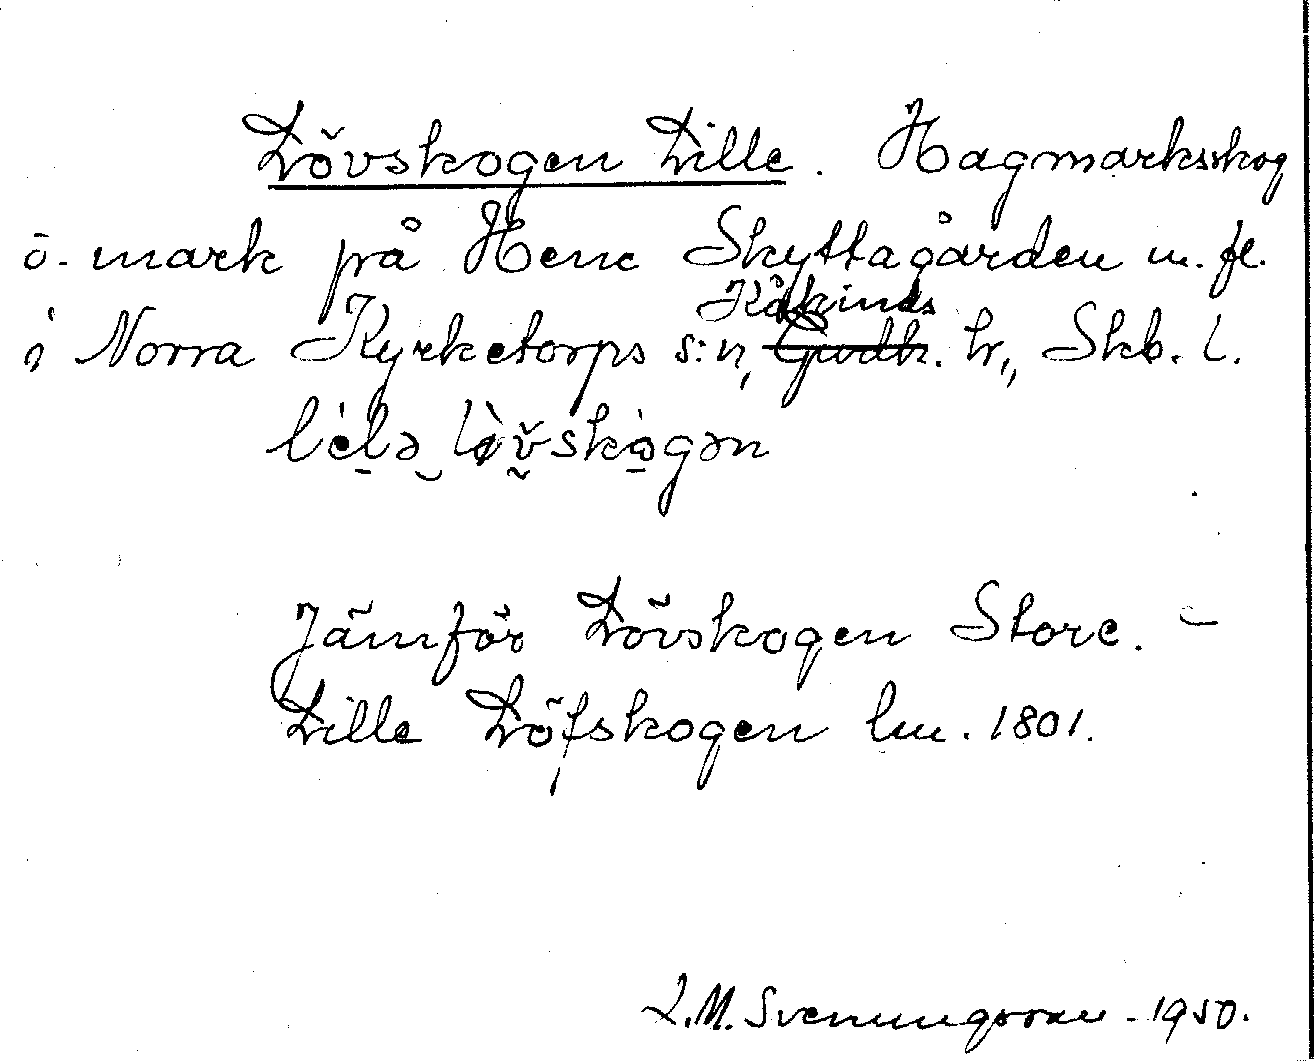 Lövskogen Lille. Hagmarksskog
o. mark på Hene Skyttagården m. fl.
i Norra Kyrketorps s:n, Kåkinds Gudh. hr., Skb. l.
lela løvskogən
Jämför Lövskogen Store.
Lille Löfskogen lm. 1801.
L.M. Svenungsson - 1950.